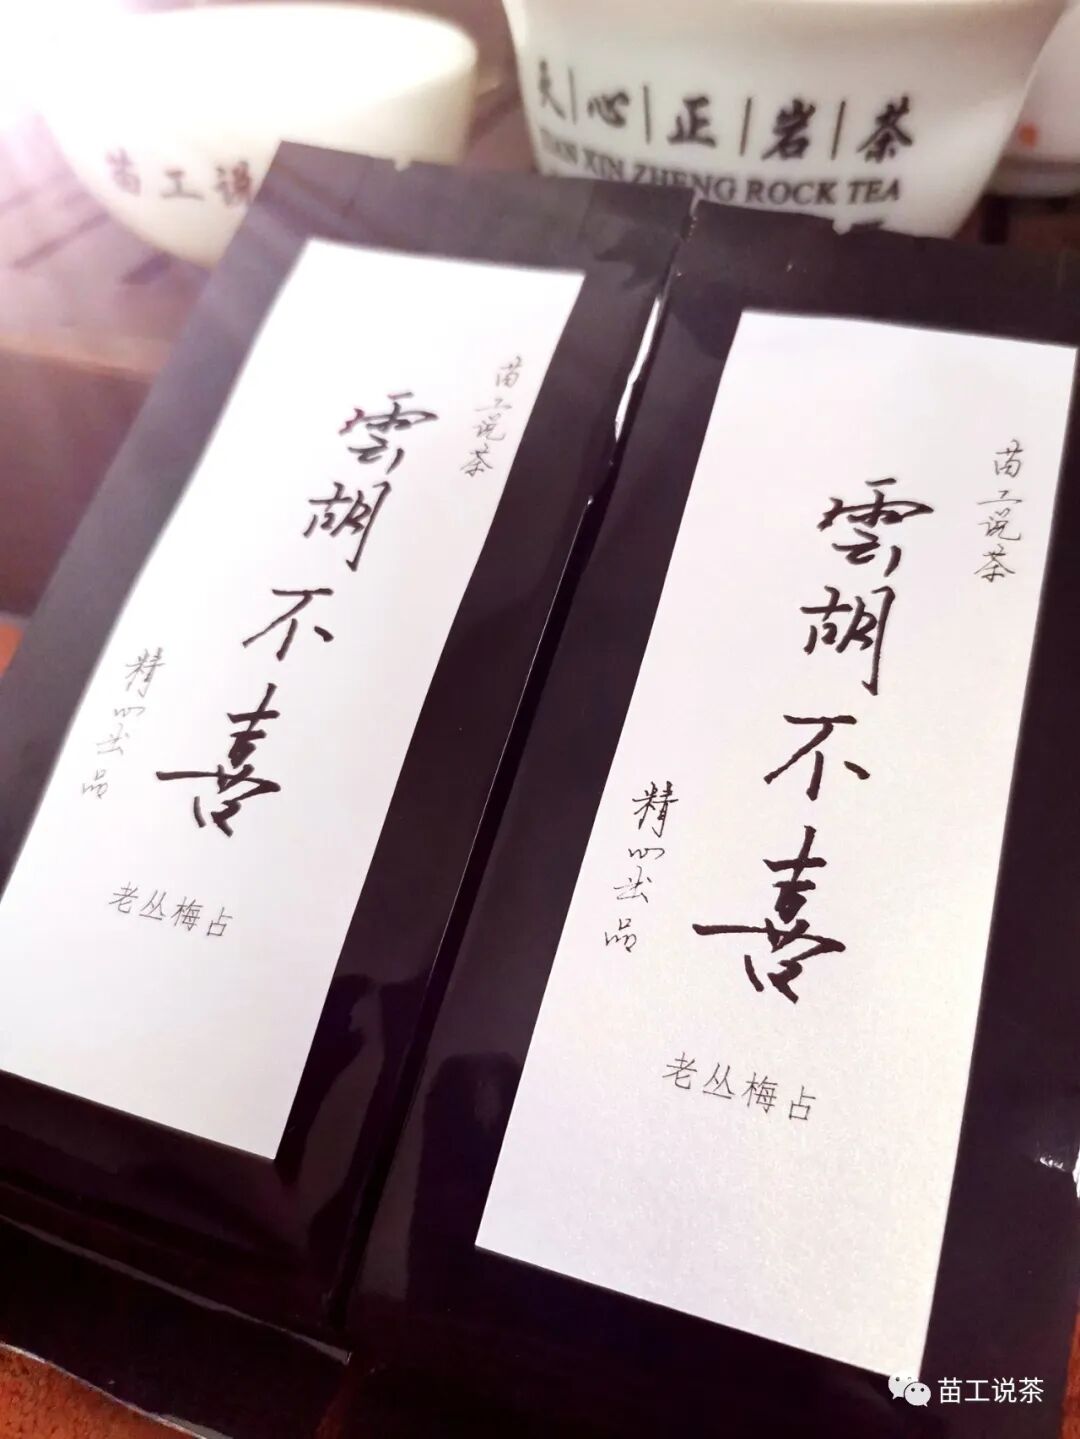 天|心|正|岩|茶
TIAN XIN ZHENG ROCK TEA
苗工说
苗工说茶
雲胡不喜
精心出品
老丛梅占
苗工说茶
雲胡不喜
精心出品
老丛梅占
苗工说茶